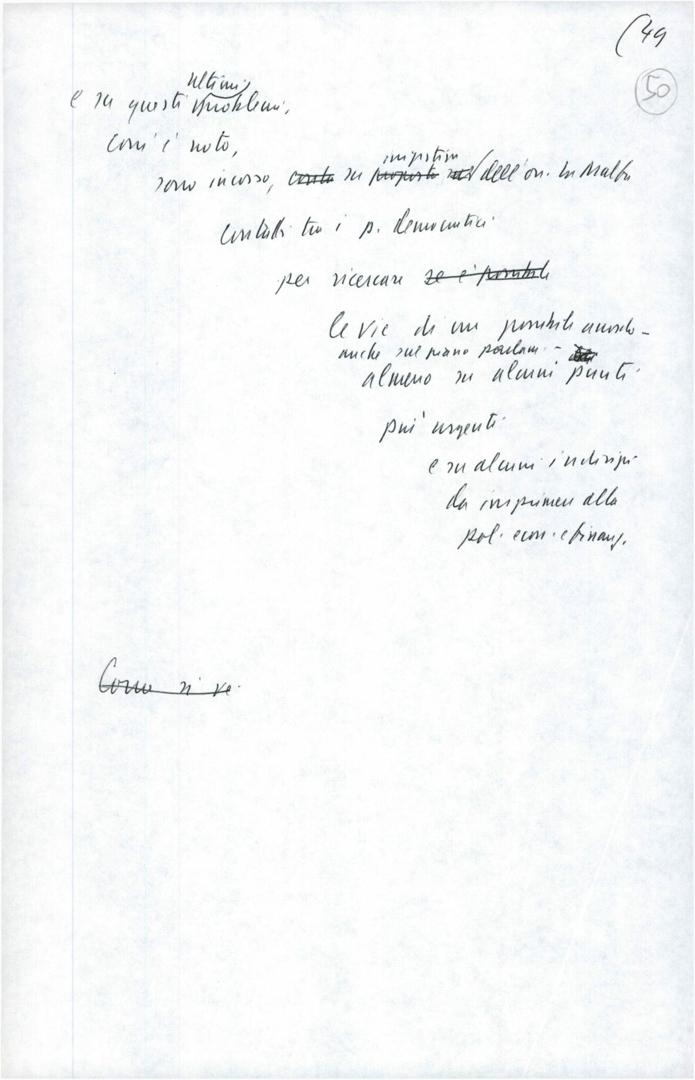 (49
50
ultimi
e su questi problemi,
com'è noto,
iniziativa
sono in corso, su proposta dell'on. La Malfa
contatti tra i p. democratici
per ricercare se è possibile
le vie di un possibile accordo -
anche sul piano parlam. -
almeno su alcuni punti
più urgenti
e su alcuni indirizzi
da imprimere alla
pol. econ. e finanz.
Come si ve